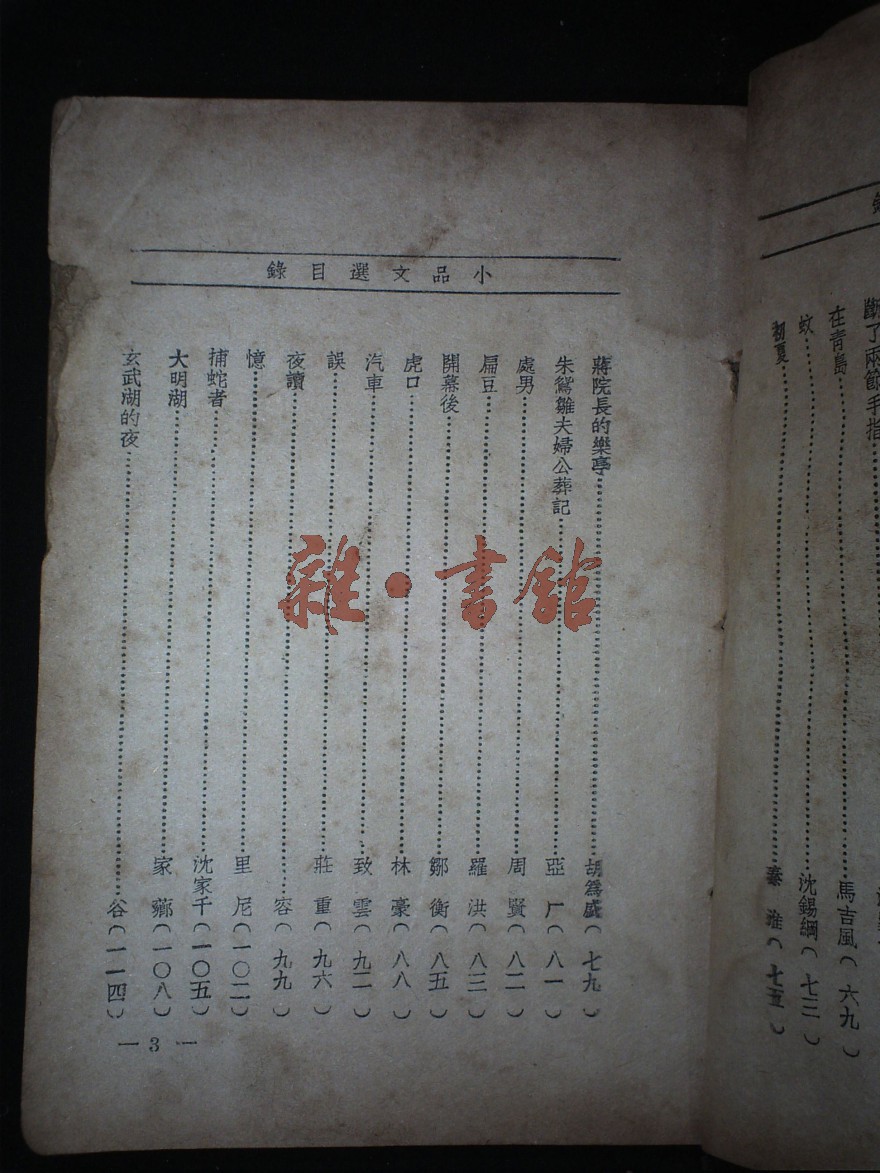 斷了兩節手指
在青島 馬吉風（六九）
蚊 沈錫綱（七三）
初夏 秦淮（七五）
小品文選目錄
蔣院長的樂亭 胡為盛（七九）
朱鴛雛夫婦公葬記 亞厂（八一）
處男 周賢（八二）
扁豆 羅洪（八三）
開幕後 鄒衡（八五）
虎口 林豪（八八）
汽車 致雲（九二）
誤 莊重（九六）
夜讀 容（九九）
憶 里尼（一〇二）
捕蛇者 沈家千（一〇五）
大明湖 家薌（一〇八）
玄武湖的夜 谷（一一四）
— 3 —
雜·書館